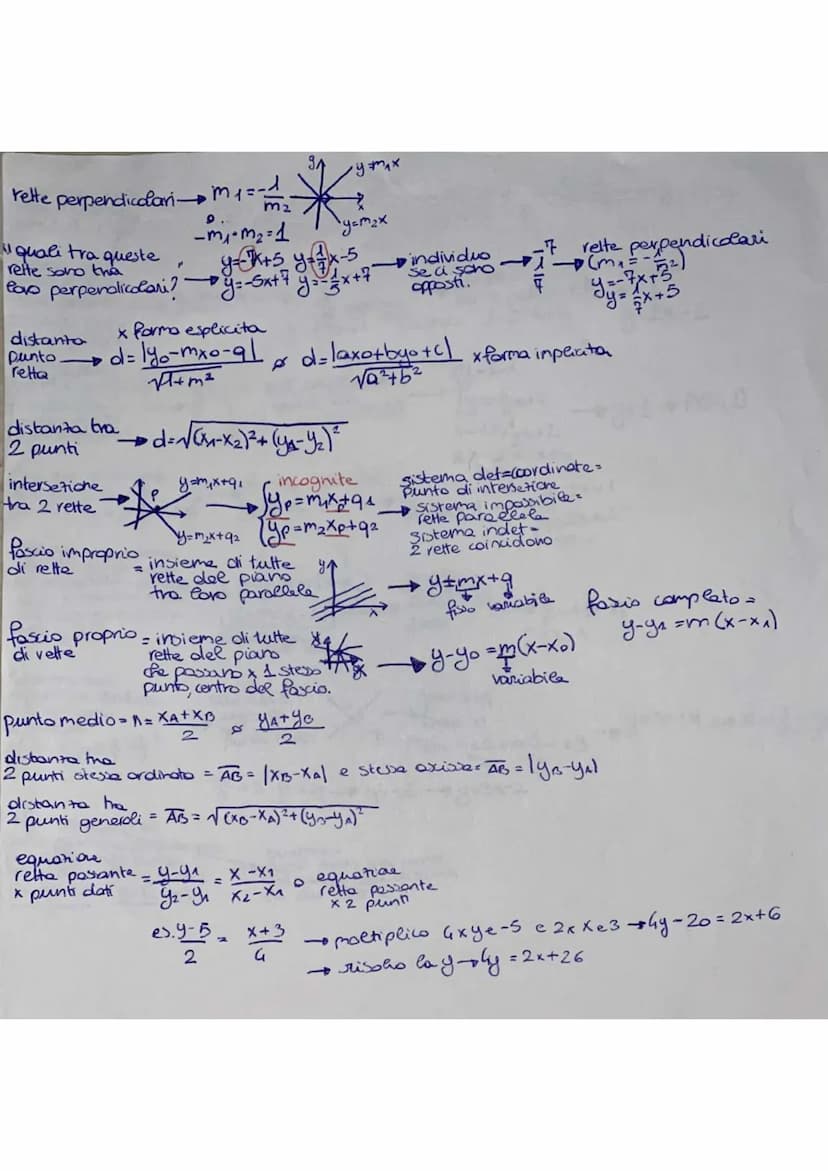 rette perpendicolari → m1 = -1/m2
y y=m1x
x
y=m2x
o
-m1·m2=1
"quali tra queste rette sono tra loro perpendicolari?
→ y=-7x+5 y=1/7x-5
→ y=-5x+7 y=-1/5x+7
→ individuo se ci sono opposti.
→ -7 1/7
→ rette perpendicolari
(m1=-1/m2)
y=-7x+5
y=1/7x+5
distanza punto retta →
x forma esplicita
d=|y0-mx0-q|/√1+m² o d=|ax0+by0+c|/√a²+b² x forma inplicita
distanza tra
2 punti → d=√(x1-x2)²+(y1-y2)²
intersezione
tra 2 rette →
P y=m1x+q1
y=m2x+q2
→ { incognite
yp=m1xp+q1
yp=m2xp+q2
→ sistema det=coordinate=
punto di intersezione
sistema impossibile=
rette parallele
sistema indet=
2 rette coincidono
fascio improprio
di rette
= insieme di tutte
rette del piano
tra loro parallele
y x
→ y=mx+q
fisso variabile
fascio completo =
y-y1=m(x-x1)
fascio proprio
di rette
= insieme di tutte
rette del piano
che passano x 1 stesso
punto, centro del fascio.
y x
→ y-y0=m(x-x0)
variabile
punto medio = M= xA+xB/2 o yA+yB/2
distanza tra
2 punti stessa ordinata = AB = |xB-xA| e stessa ascissa= AB = |yB-yA|
distanza tra
2 punti generali = AB = √(xB-xA)²+(yB-yA)²
equazione
retta passante
x punti dati
= y-y1/y2-y1 = x-x1/x2-x1 o equazione
retta passante
x 2 punti
es. y-5/2 = x+3/4 → moltiplico 4 x y e -5 e 2 x x e 3 → 4y-20=2x+6
→ risolvo la y → 4y=2x+26